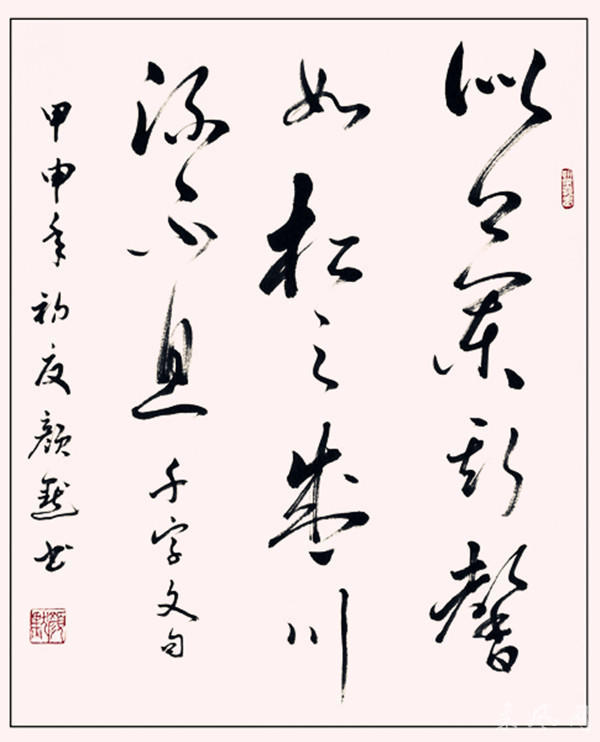 似蘭斯馨
如松之盛川
流不息 千字文句
甲申年初夏顏默书